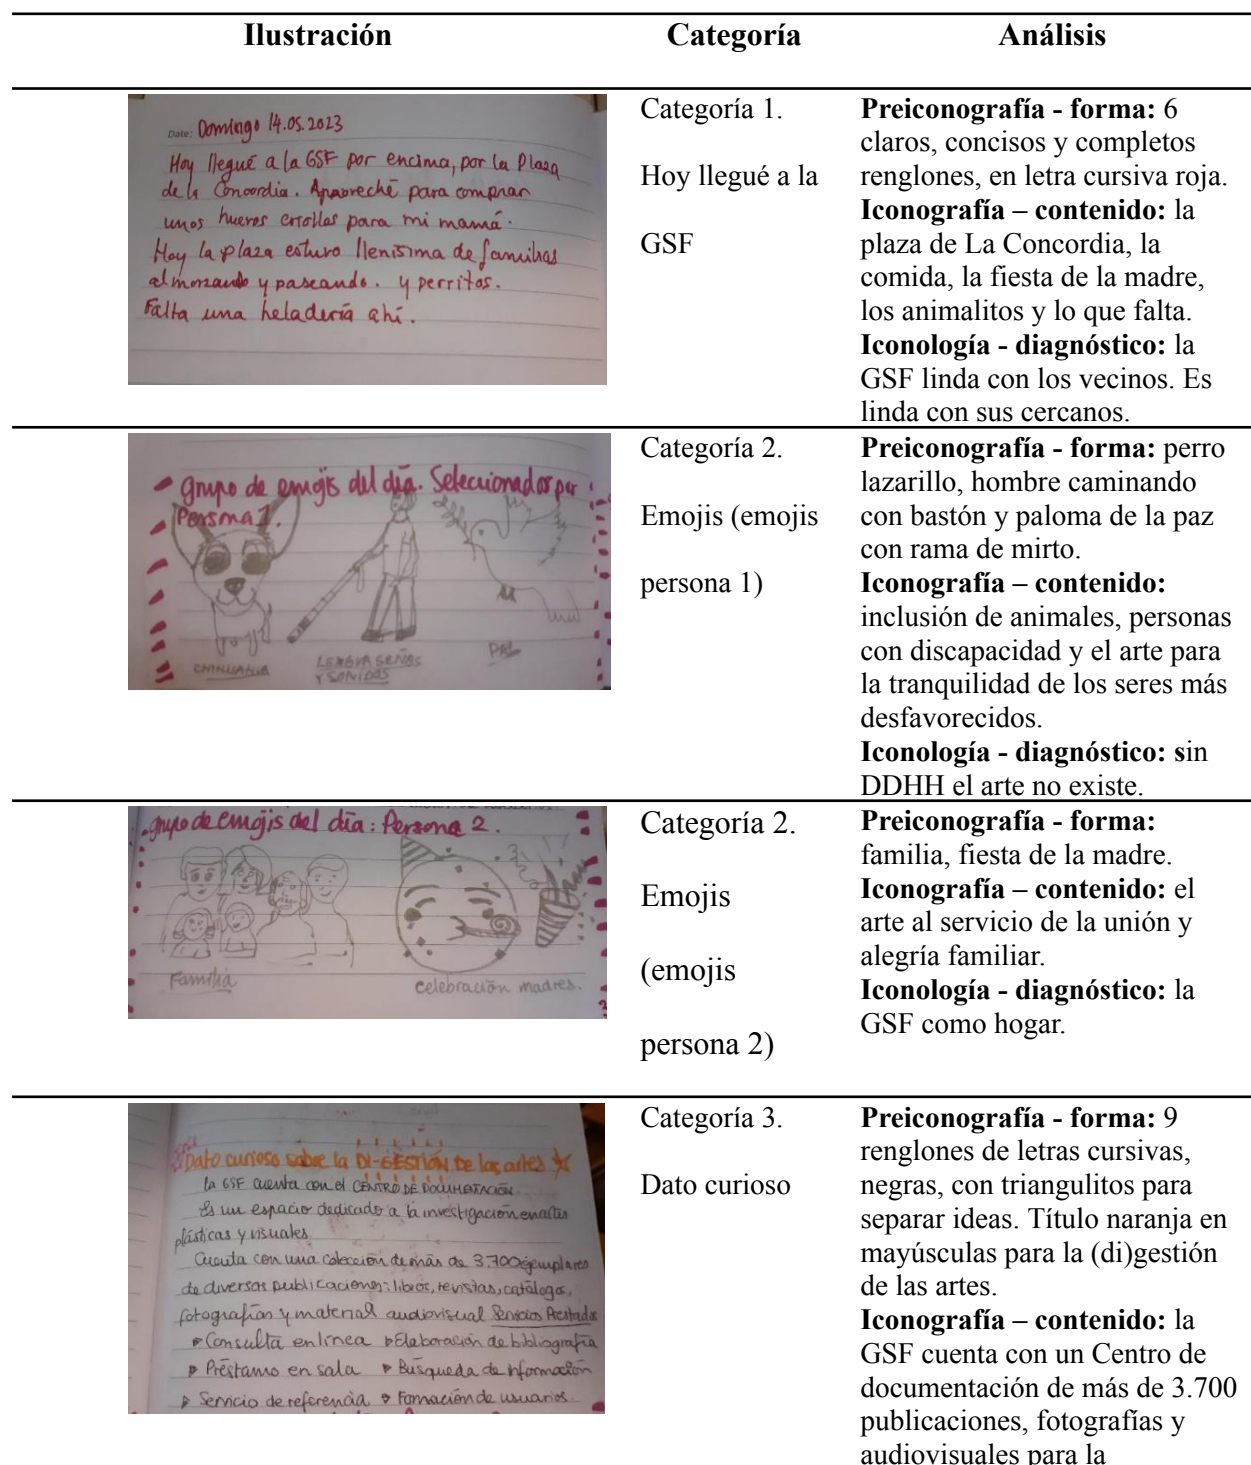 Ilustración Categoría Análisis
Date: Domingo 14.05.2023
Hoy llegué a la GSF por encima, por la Plaza
de la Concordia. Aproveché para comprar
unos huevos criollos para mi mamá.
Hoy la plaza estuvo llenísima de familias
almorzando y paseando. y perritos.
Falta una heladería ahí.
Categoría 1.
Hoy llegué a la
GSF
Preiconografía - forma: 6
claros, concisos y completos
renglones, en letra cursiva roja.
Iconografía – contenido: la
plaza de La Concordia, la
comida, la fiesta de la madre,
los animalitos y lo que falta.
Iconología - diagnóstico: la
GSF linda con los vecinos. Es
linda con sus cercanos.
grupo de emojis del día. Seleccionados por
Persona 1.
CHIHUAHUA
LENGUA SEÑAS
Y SONIDOS
PAZ
Categoría 2.
Emojis (emojis
persona 1)
Preiconografía - forma: perro
lazarillo, hombre caminando
con bastón y paloma de la paz
con rama de mirto.
Iconografía – contenido:
inclusión de animales, personas
con discapacidad y el arte para
la tranquilidad de los seres más
desfavorecidos.
Iconología - diagnóstico: sin
DDHH el arte no existe.
grupo de emojis del día: Persona 2.
Familia
celebración madres.
Categoría 2.
Emojis
(emojis
persona 2)
Preiconografía - forma:
familia, fiesta de la madre.
Iconografía – contenido: el
arte al servicio de la unión y
alegría familiar.
Iconología - diagnóstico: la
GSF como hogar.
Dato curioso sobre la DI-GESTIÓN de las artes
la GSF cuenta con el CENTRO DE DOCUMENTACIÓN.
Es un espacio dedicado a la investigación en artes
plásticas y visuales.
Cuenta con una colección de más de 3.700 ejemplares
de diversas publicaciones: libros, revistas, catálogos,
fotografías y material audiovisual Servicios Prestados
▸ Consulta en línea ▸ Elaboración de bibliografía
▸ Préstamo en sala ▸ Búsqueda de información
▸ Servicio de referencia ▸ Formación de usuarios.
Categoría 3.
Dato curioso
Preiconografía - forma: 9
renglones de letras cursivas,
negras, con triangulitos para
separar ideas. Título naranja en
mayúsculas para la (di)gestión
de las artes.
Iconografía – contenido: la
GSF cuenta con un Centro de
documentación de más de 3.700
publicaciones, fotografías y
audiovisuales para la